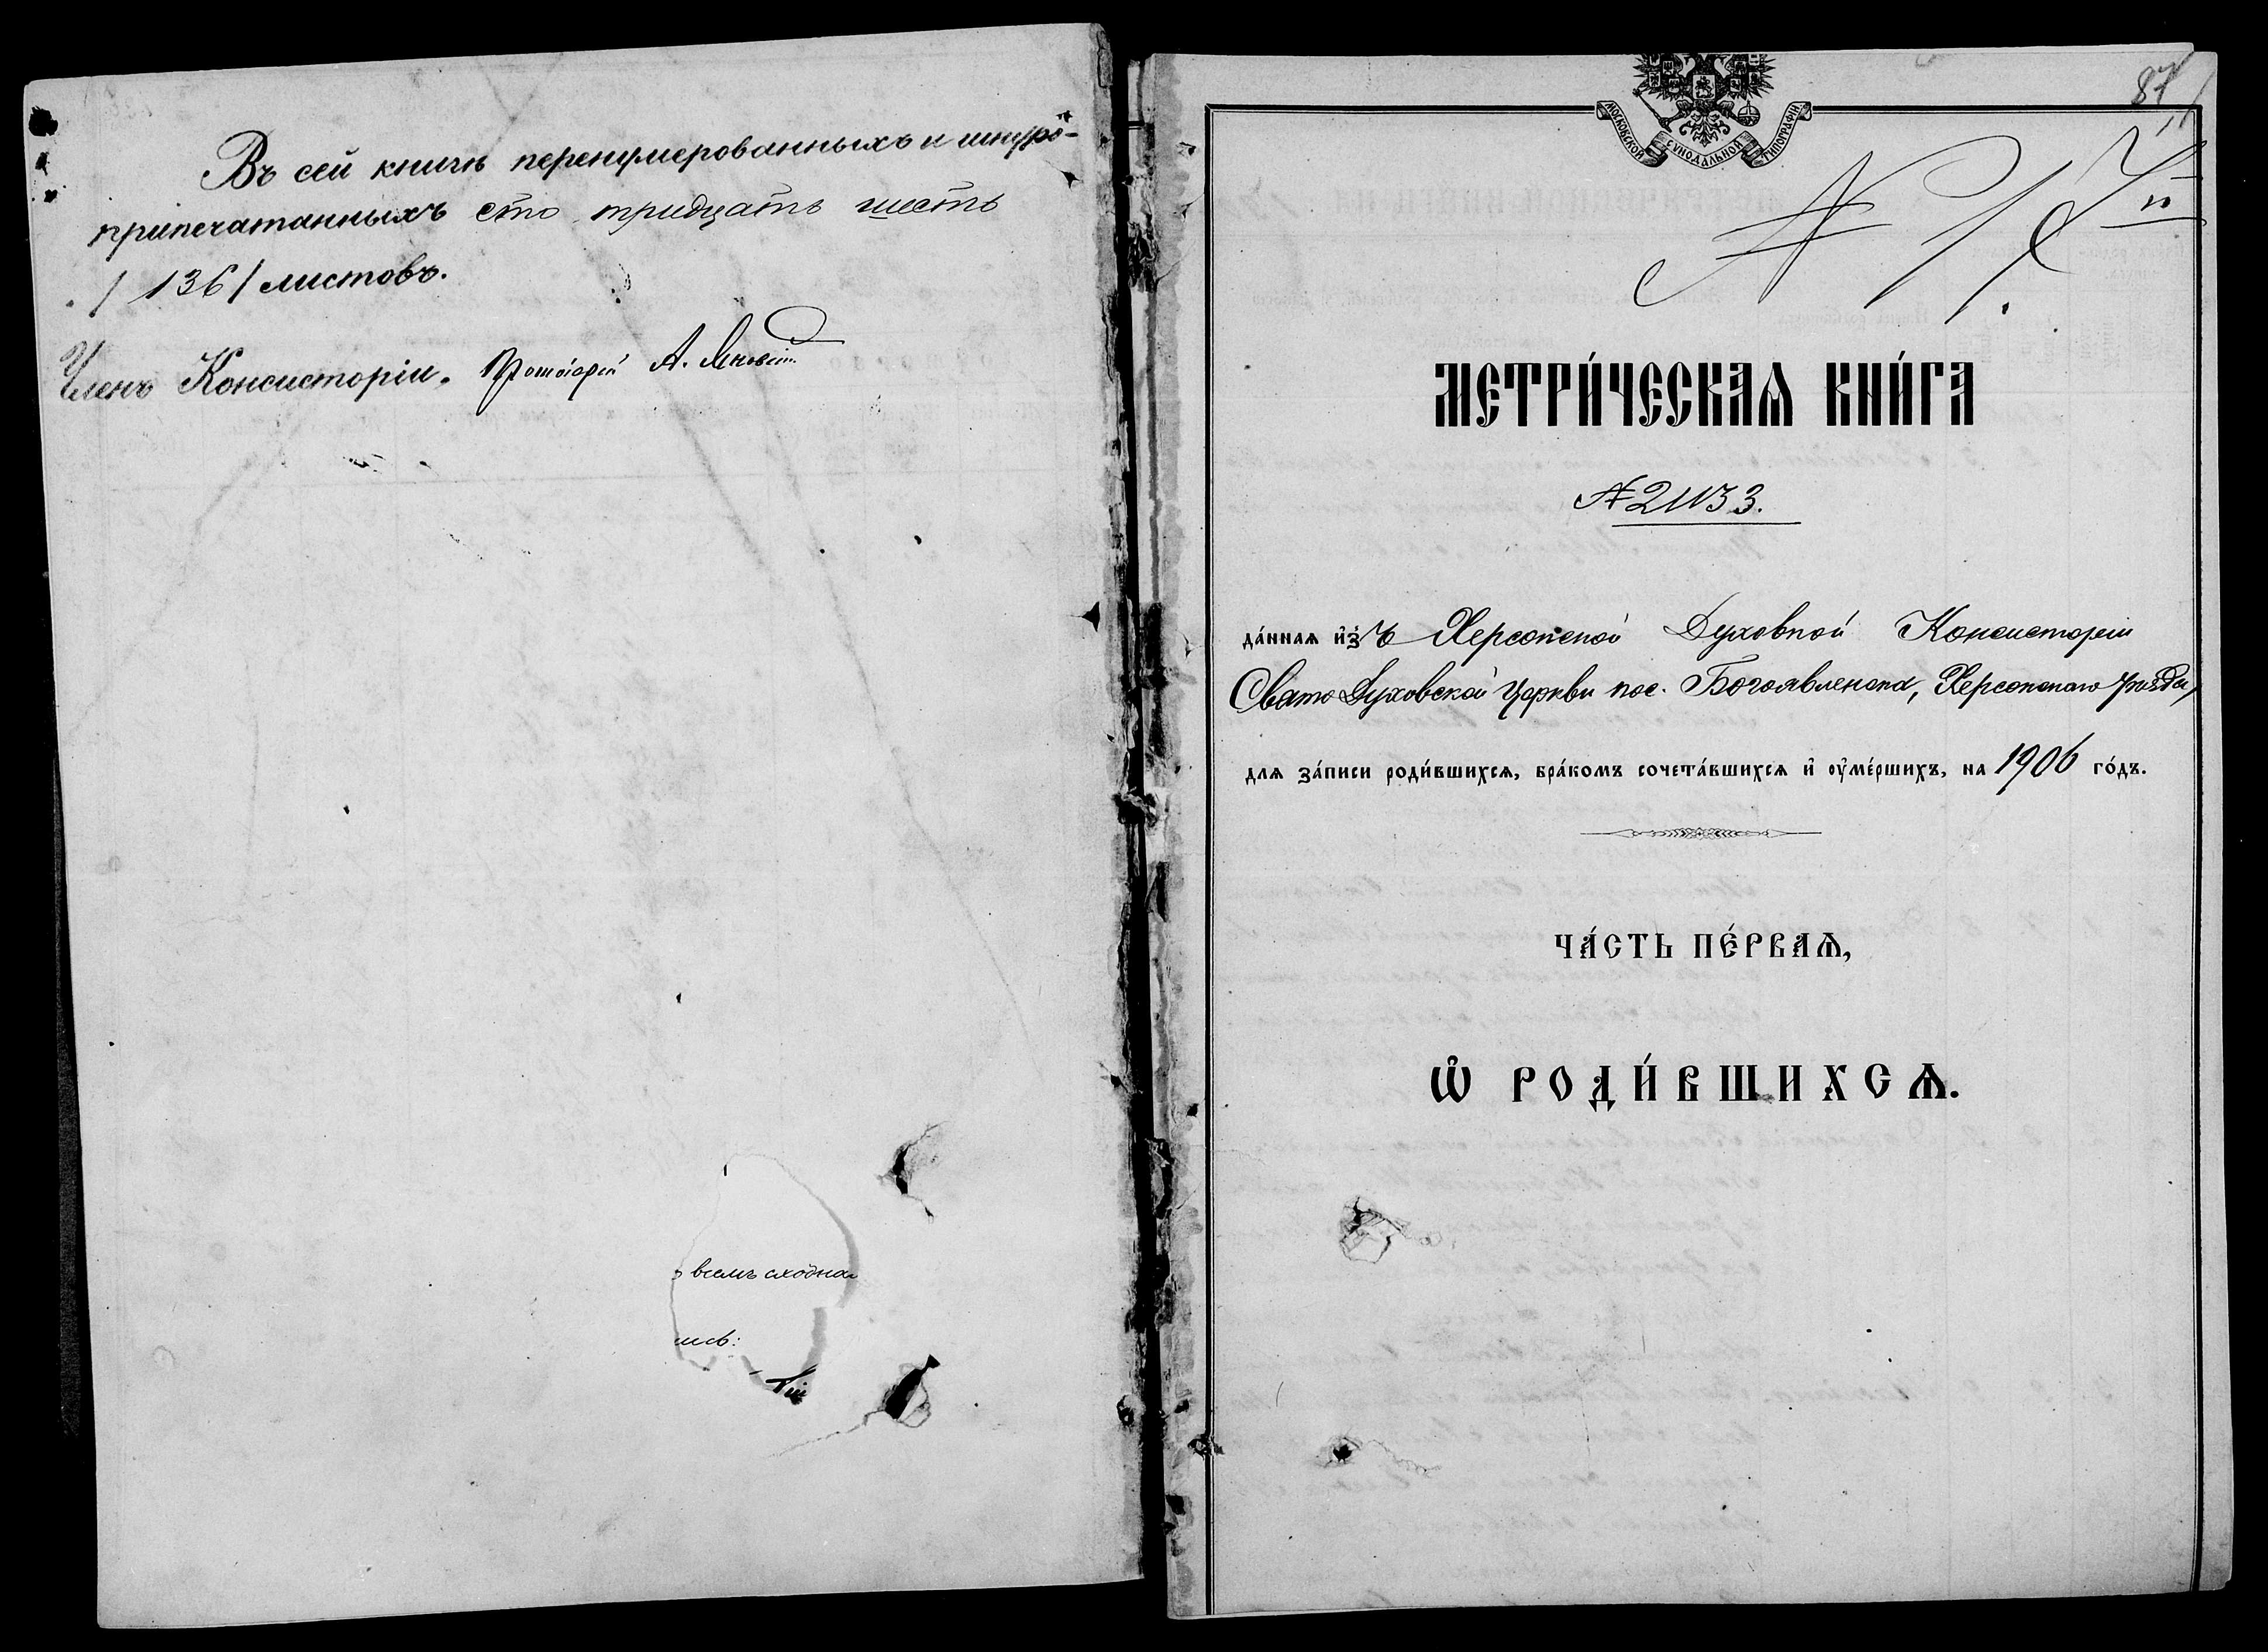 Въ сей книгѣ перенумерованныхъ и шнуро-
припечатанныхъ сто тридцать шесть
/ 136 / листовъ.
Членъ Консисторіи, Протоіерей А.
всемъ сходна
ись:
87
МОСКОВСКОЙ СѴНОДАЛЬНОЙ ТИПОГРАФІИ
№ 1.
МЕТРИ́ЧЕСКАѦ КНИ́ГА
№ 21133.
да́ннаѧ и҆зъ Херсонской Духовной Консисторіи
Свято Духовской Церкви пос. Богоявленска, Херсонскаго уѣзда,
длѧ за́писи роди́вшихсѧ, бра́комъ сочета́вшихсѧ и҆ оу҆ме́ршихъ, на 1906 го́дъ.
ЧА́СТЬ ПЕ́РВАѦ,
Ѡ҆ РОДИ́ВШИХСѦ.